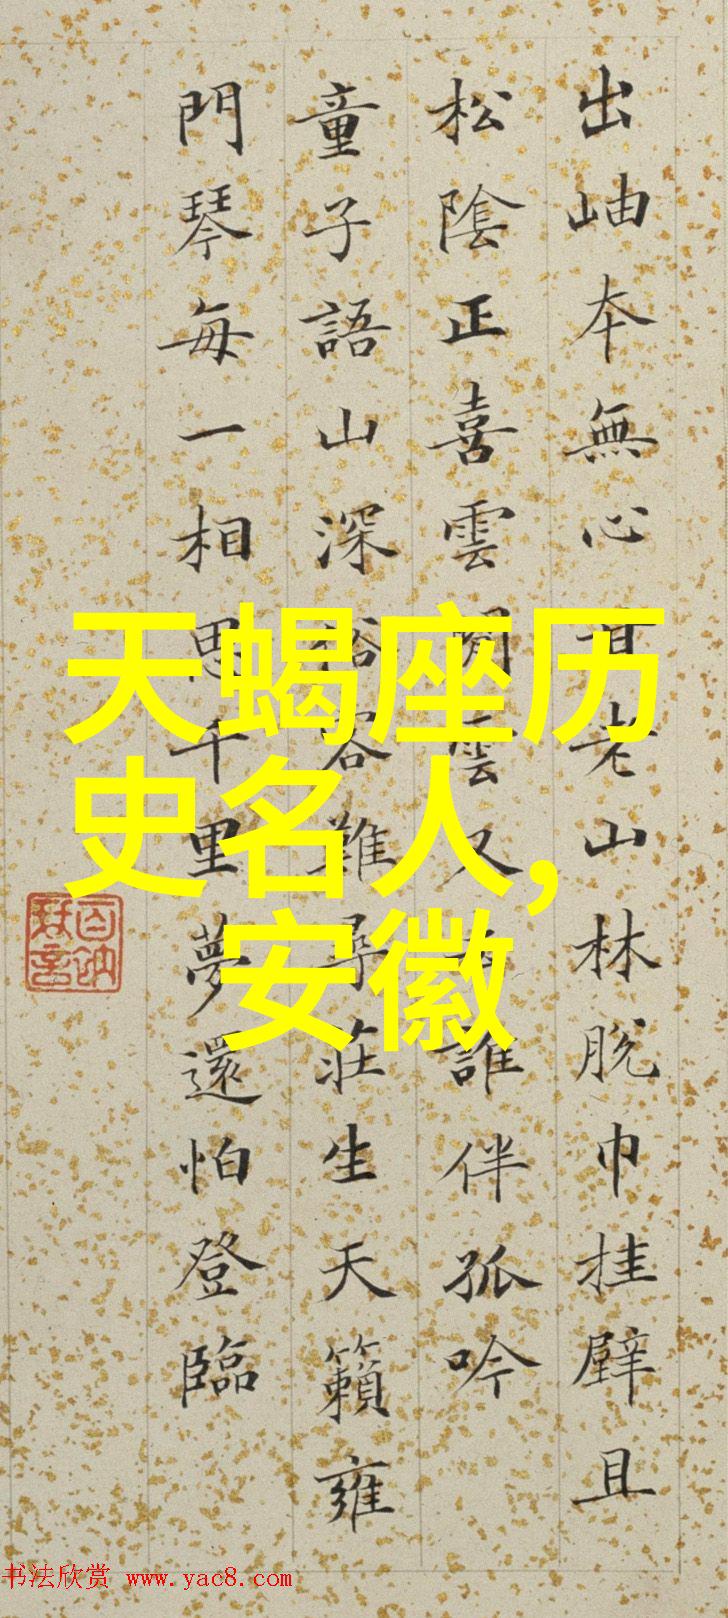 出岫本無心甘老山林脫巾挂壁且
松陰正喜雲閒雲又去誰伴孤吟
童子語山深谷難尋莊生天籟雍
門琴每一相思千里夢還怕登臨
天蝎座历
史名人,
安徽
书法欣赏 www.yac8.com